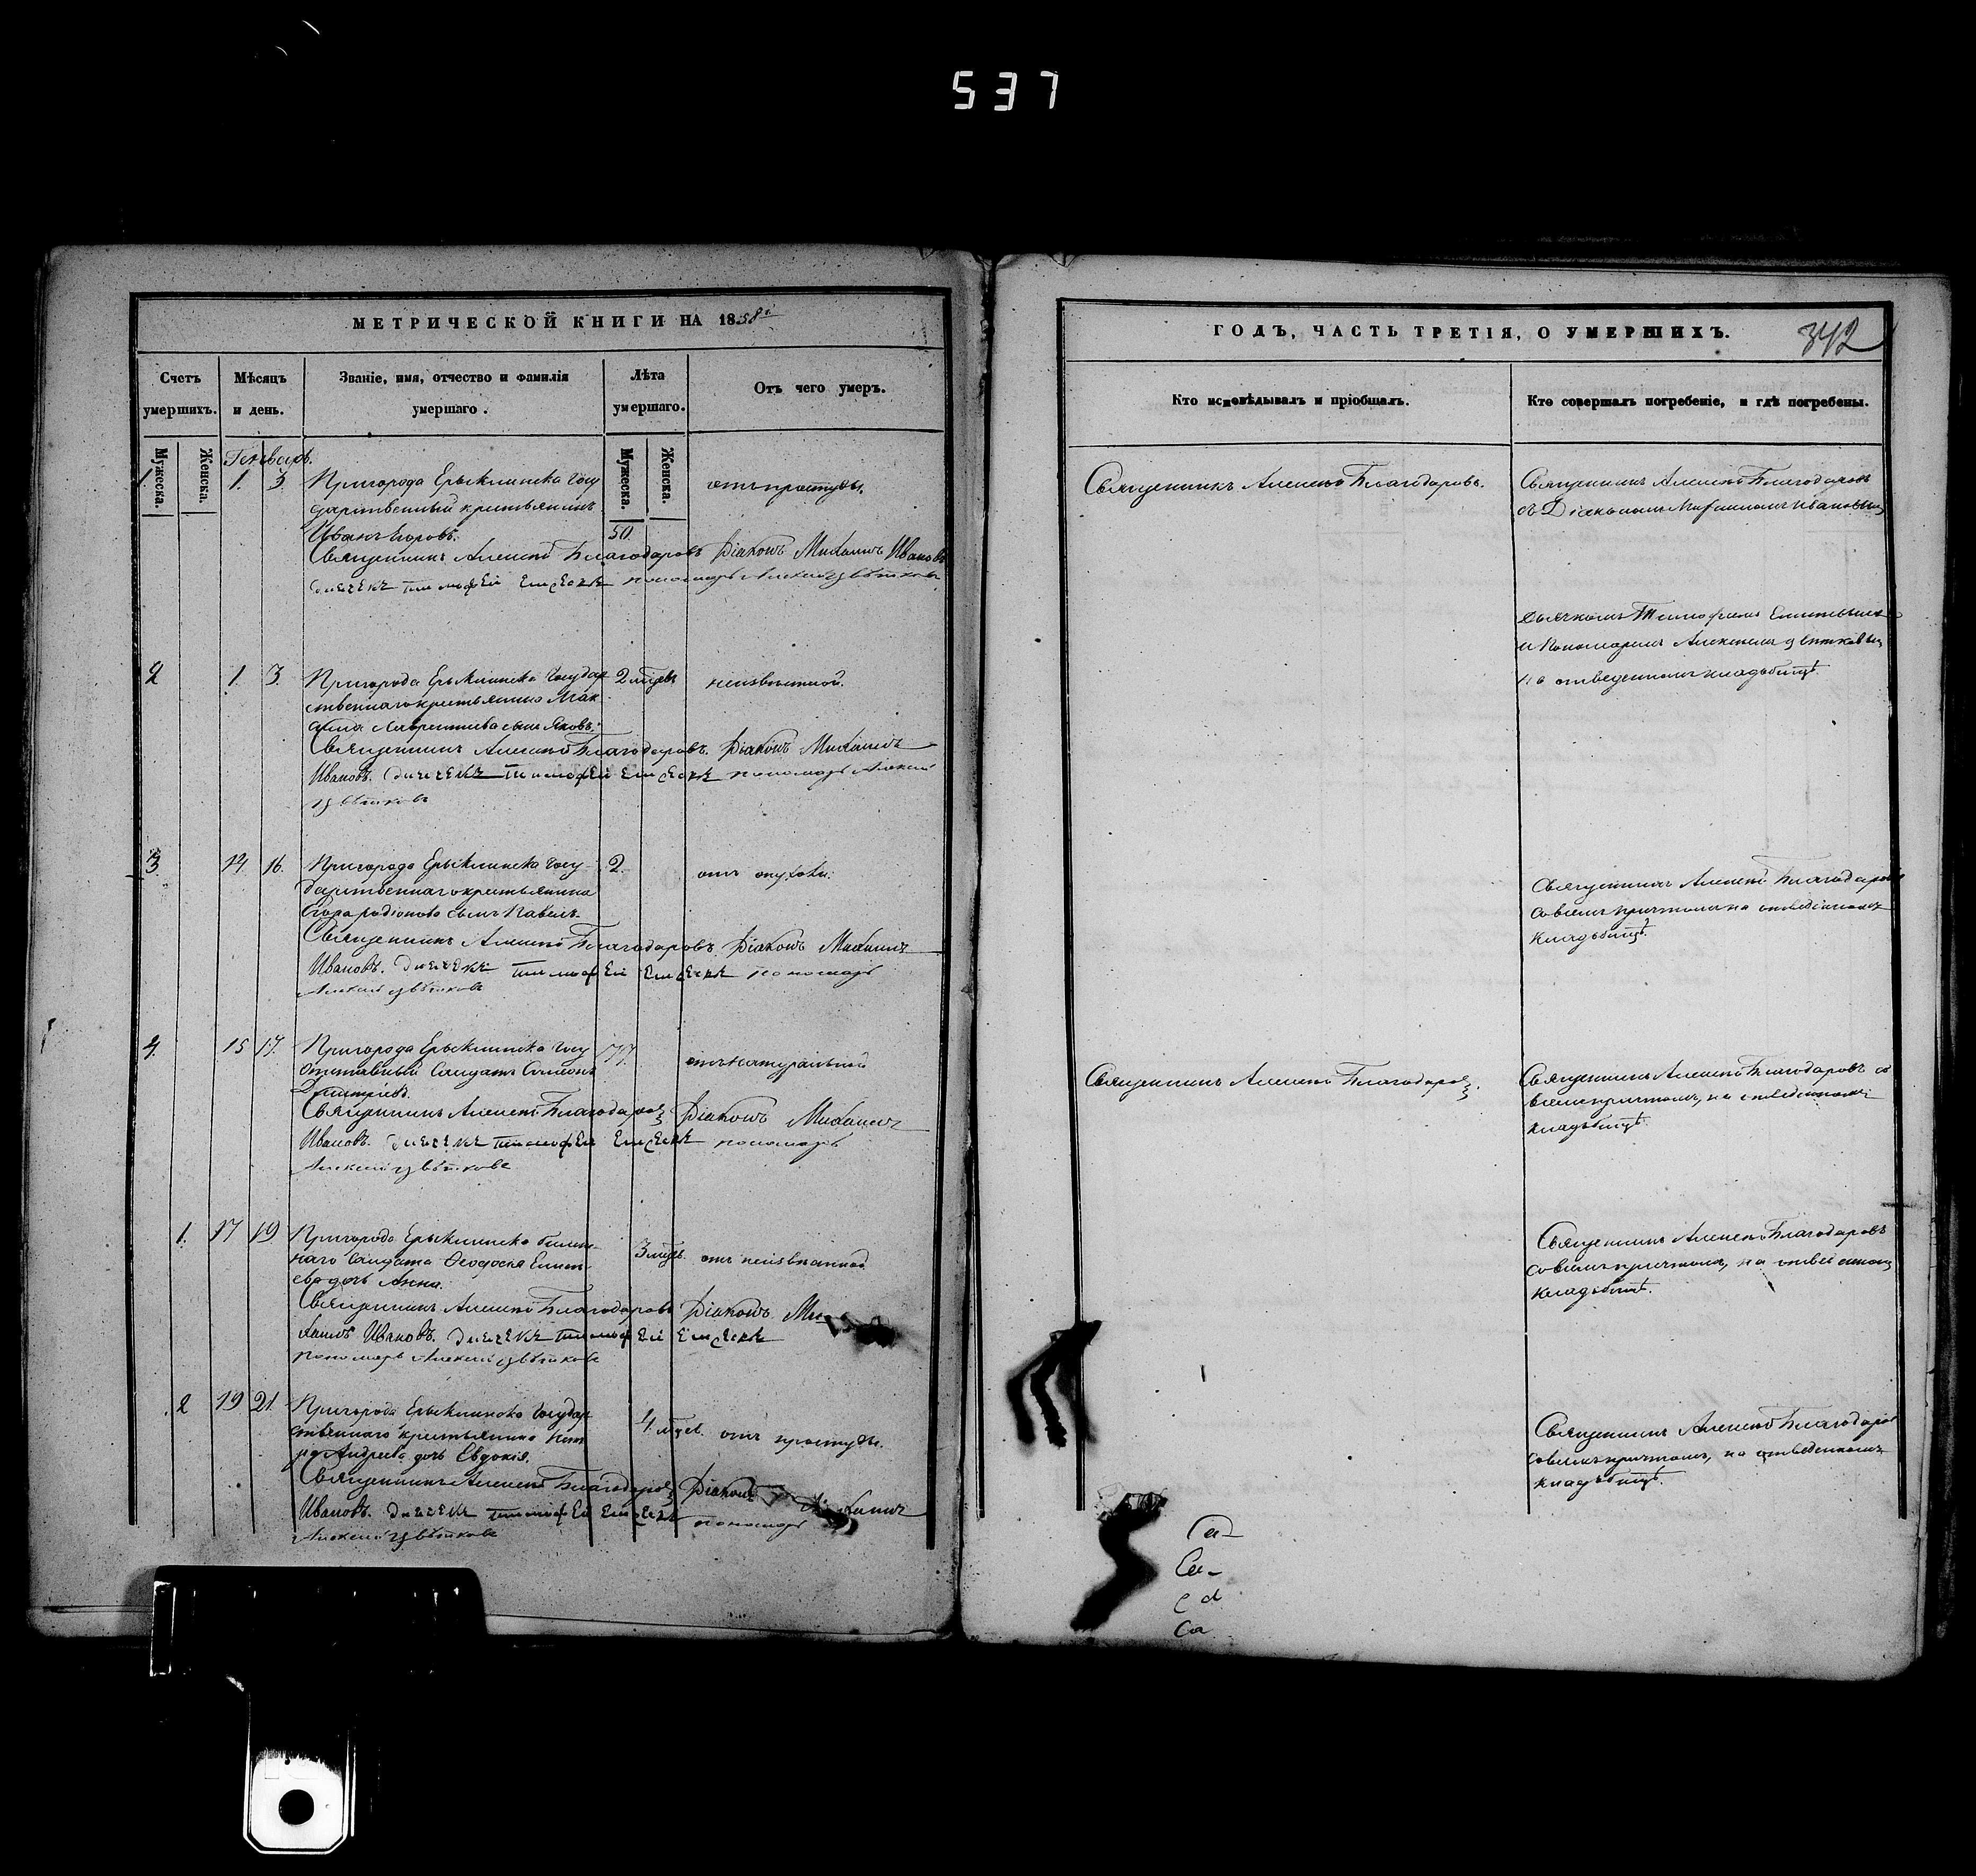 537
МЕТРИЧЕСКОЙ КНИГИ НА 1858й
Счетъ умершихъ.
Мѣсяцъ и день.
Званіе, имя, отчество и фамилія умершаго.
Лѣта умершаго.
Отъ чего умеръ.
Мужеска.
Женска.
Генварь.
Мужеска.
Женска.
1. 1. 3. Пригорода Ерыклинска Госу
дарственный крестьянинъ
Иванъ Егоровъ. 50. отъ простуды.
Священникъ Алексѣй Благодаровъ Діаконъ Михаилъ Ивановъ
дьячекъ тимофей пономарь Алексей цвѣтковъ
2 1. 3. Пригорода Ерыклинска Государ
ственнаго крестьянина Мак
сима Лаврентиева сынъ Яковъ. 2 мцевъ неизвѣстной.
Священникъ Алексѣй Благодаровъ. Діаконъ Михаилъ
Ивановъ. дьячекъ тимофей пономарь Алексей
цвѣтковъ
3. 14. 16. Пригорода Ерыклинска Госу-
дарственнаго крестьянина
Егора родіонова сынъ Павелъ. 2. отъ
Священникъ Алексѣй Благодаровъ. Діаконъ Михаилъ
Ивановъ. дьячекъ тимофей пономарь
Алексей цвѣтковъ
4. 15 17. Пригорода Ерыклинска Госу
Отставный Солдатъ Симеонъ
Дмитріевъ. 77. отъ натуральной
Священникъ Алексѣй Благодаровъ Діаконъ Михаилъ
Ивановъ. дьячекъ тимофей пономарь
Алексей цвѣтковъ
1. 17 19. Пригорода Ерыклинска билет-
наго Солдата Ѳеодосія
дочь Анна. 3 мцъ. отъ неизвѣстной
Священникъ Алексѣй Благодаровъ Діаконъ Ми
хаилъ Ивановъ. дьячекъ тимофей
пономарь Алексей цвѣтковъ
2 19 21. Пригорода Ерыклинска Государ
ственнаго крестьянина Пет
ра Андреева дочь Евдокія. 4 мцев. отъ простуды.
Священникъ Алексѣй Благодаровъ Діаконъ Михаилъ
Ивановъ. дьячекъ тимофей пономарь
Алексей цвѣтковъ
ГОДЪ, ЧАСТЬ ТРЕТІЯ, О УМЕРШИХЪ.
342
Кто исповѣдывалъ и пріобщалъ.
Кто совершалъ погребеніе, и гдѣ погребены.
Священникъ Алексѣй Благодаровъ.
Священникъ Алексѣй Благодаровъ
съ Діакономъ Михаиломъ Ивановымъ
дьячкомъ Тимофеемъ
и Пономаремъ Алексеемъ Цветковымъ
на отведенномъ кладбищѣ.
Священникъ Алексѣй Благодаровъ
со всемъ причтомъ на отведенномъ
кладбищѣ.
Священникъ Алексѣй Благодаровъ.
Священникъ Алексѣй Благодаровъ со
всемъ причтомъ, на отведенномъ
кладбищѣ.
Священникъ Алексѣй Благодаровъ
со всемъ причтомъ, на отведенномъ
кладбищѣ.
Священникъ Алексѣй Благодаровъ
со всемъ причтомъ, на отведенномъ
кладбищѣ.